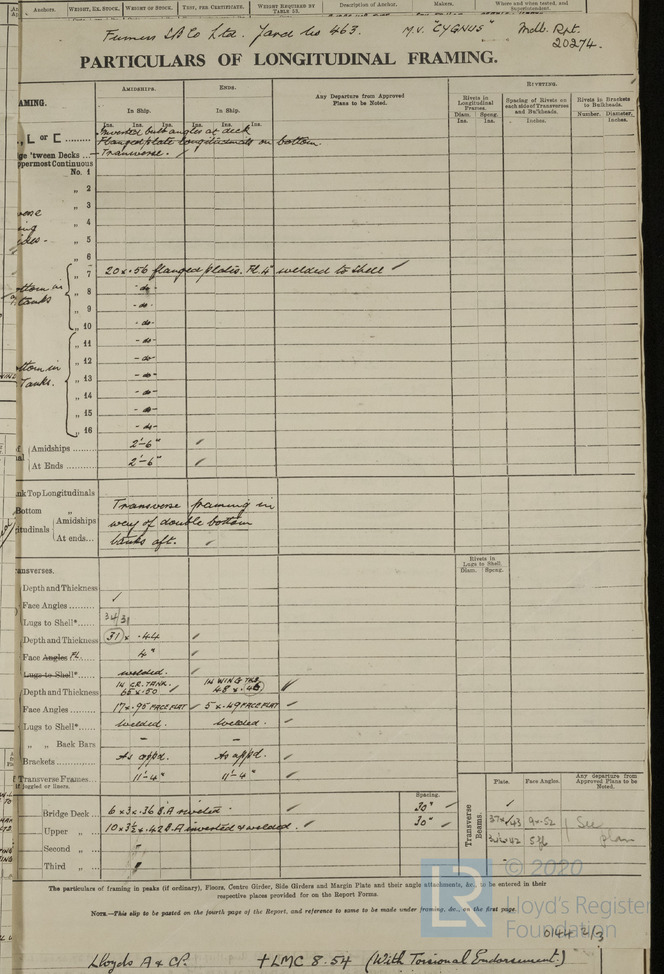 Anchors. WEIGHT, EX. STOCK. WEIGHT OF STOCK. TEST, PER CERTIFICATE. WEIGHT REQUIRED BY TABLE 53. Description of Anchor. Makers. Where and when tested, and Superintendent.
Furness S.B. Co Ltd. Yard No 463. M.V. "CYGNUS" Mdb. Rpt. 20274.
PARTICULARS OF LONGITUDINAL FRAMING.
AMING. AMIDSHIPS. ENDS. Any Departure from Approved Plans to be Noted. RIVETING.
In Ship. In Ship. Rivets in Longitudinal Frames. Spacing of Rivets on each side of Transverses and Bulkheads. Rivets in Brackets to Bulkheads.
Ins. Ins. Ins. Ins. Ins. Ins. Diam. Ins. Spcng. Ins. Inches. Number. Diameter, Inches.
L or [ ......... Inverted bulb angles at deck
Flanged plate longitudinals on bottom.
ge 'tween Decks ... Transverse.
ppermost Continuous
No. 1
„ 2
„ 3
„ 4
„ 5
„ 6
„ 7 20 x .56 flanged plates. FL. 4" welded to shell ✓
„ 8 - do -
„ 9 - do -
„ 10 - do -
„ 11 - do -
„ 12 - do -
„ 13 - do -
„ 14 - do -
„ 15 - do -
„ 16 - do -
Amidships ......... 2'-6" ✓
At Ends ......... 2'-6" ✓
nk Top Longitudinals
Bottom „ Transverse framing in
itudinals Amidships way of double bottom
At ends... tanks aft. ✓
ansverses. Rivets in Lugs to Shell. Diam. Spcng.
Depth and Thickness ✓
Face Angles ........
Lugs to Shell*...... 34/31
Depth and Thickness 31 x .44 ✓
Face Angles FL. 4" ✓
Lugs to Shell*...... welded.
Depth and Thickness IN CR. TANK. 65 x .50 ✓ IN WING TKS. 48 x .46 ✓
Face Angles ........ 17 x .95 FACE FLAT ✓ 5 x .49 FACE FLAT ✓
Lugs to Shell*...... Welded. Welded. ✓
„ „ Back Bars - -
Brackets ............ As appd. As appd. ✓
f Transverse Frames... 11'-4" 11'-4" ✓
f joggled or liners.
Spacing. Transverse Beams. Plate. Face Angles. Any departure from Approved Plans to be Noted.
Bridge Deck ... 6 x 3 x .36 B.A riveted. ✓ 30" ✓ ✓
Upper „ ... 10 x 3½ x .42 B.A inverted & welded. ✓ 30" ✓ 37 x .43 9 x .52 See
Second „ ... „ plan
Third „ ... „
The particulars of framing in peaks (if ordinary), Floors, Centre Girder, Side Girders and Margin Plate and their angle attachments, &c., to be entered in their
respective places provided for on the Report Forms.
NOTE.—This slip to be pasted on the fourth page of the Report, and reference to same to be made under framing, &c., on the first page.
© 2020
LR
Lloyd's Register
Foundation
0144 2/3
Lloyds A & CP. +LMC 8.54 (With Torsional Endorsement.)